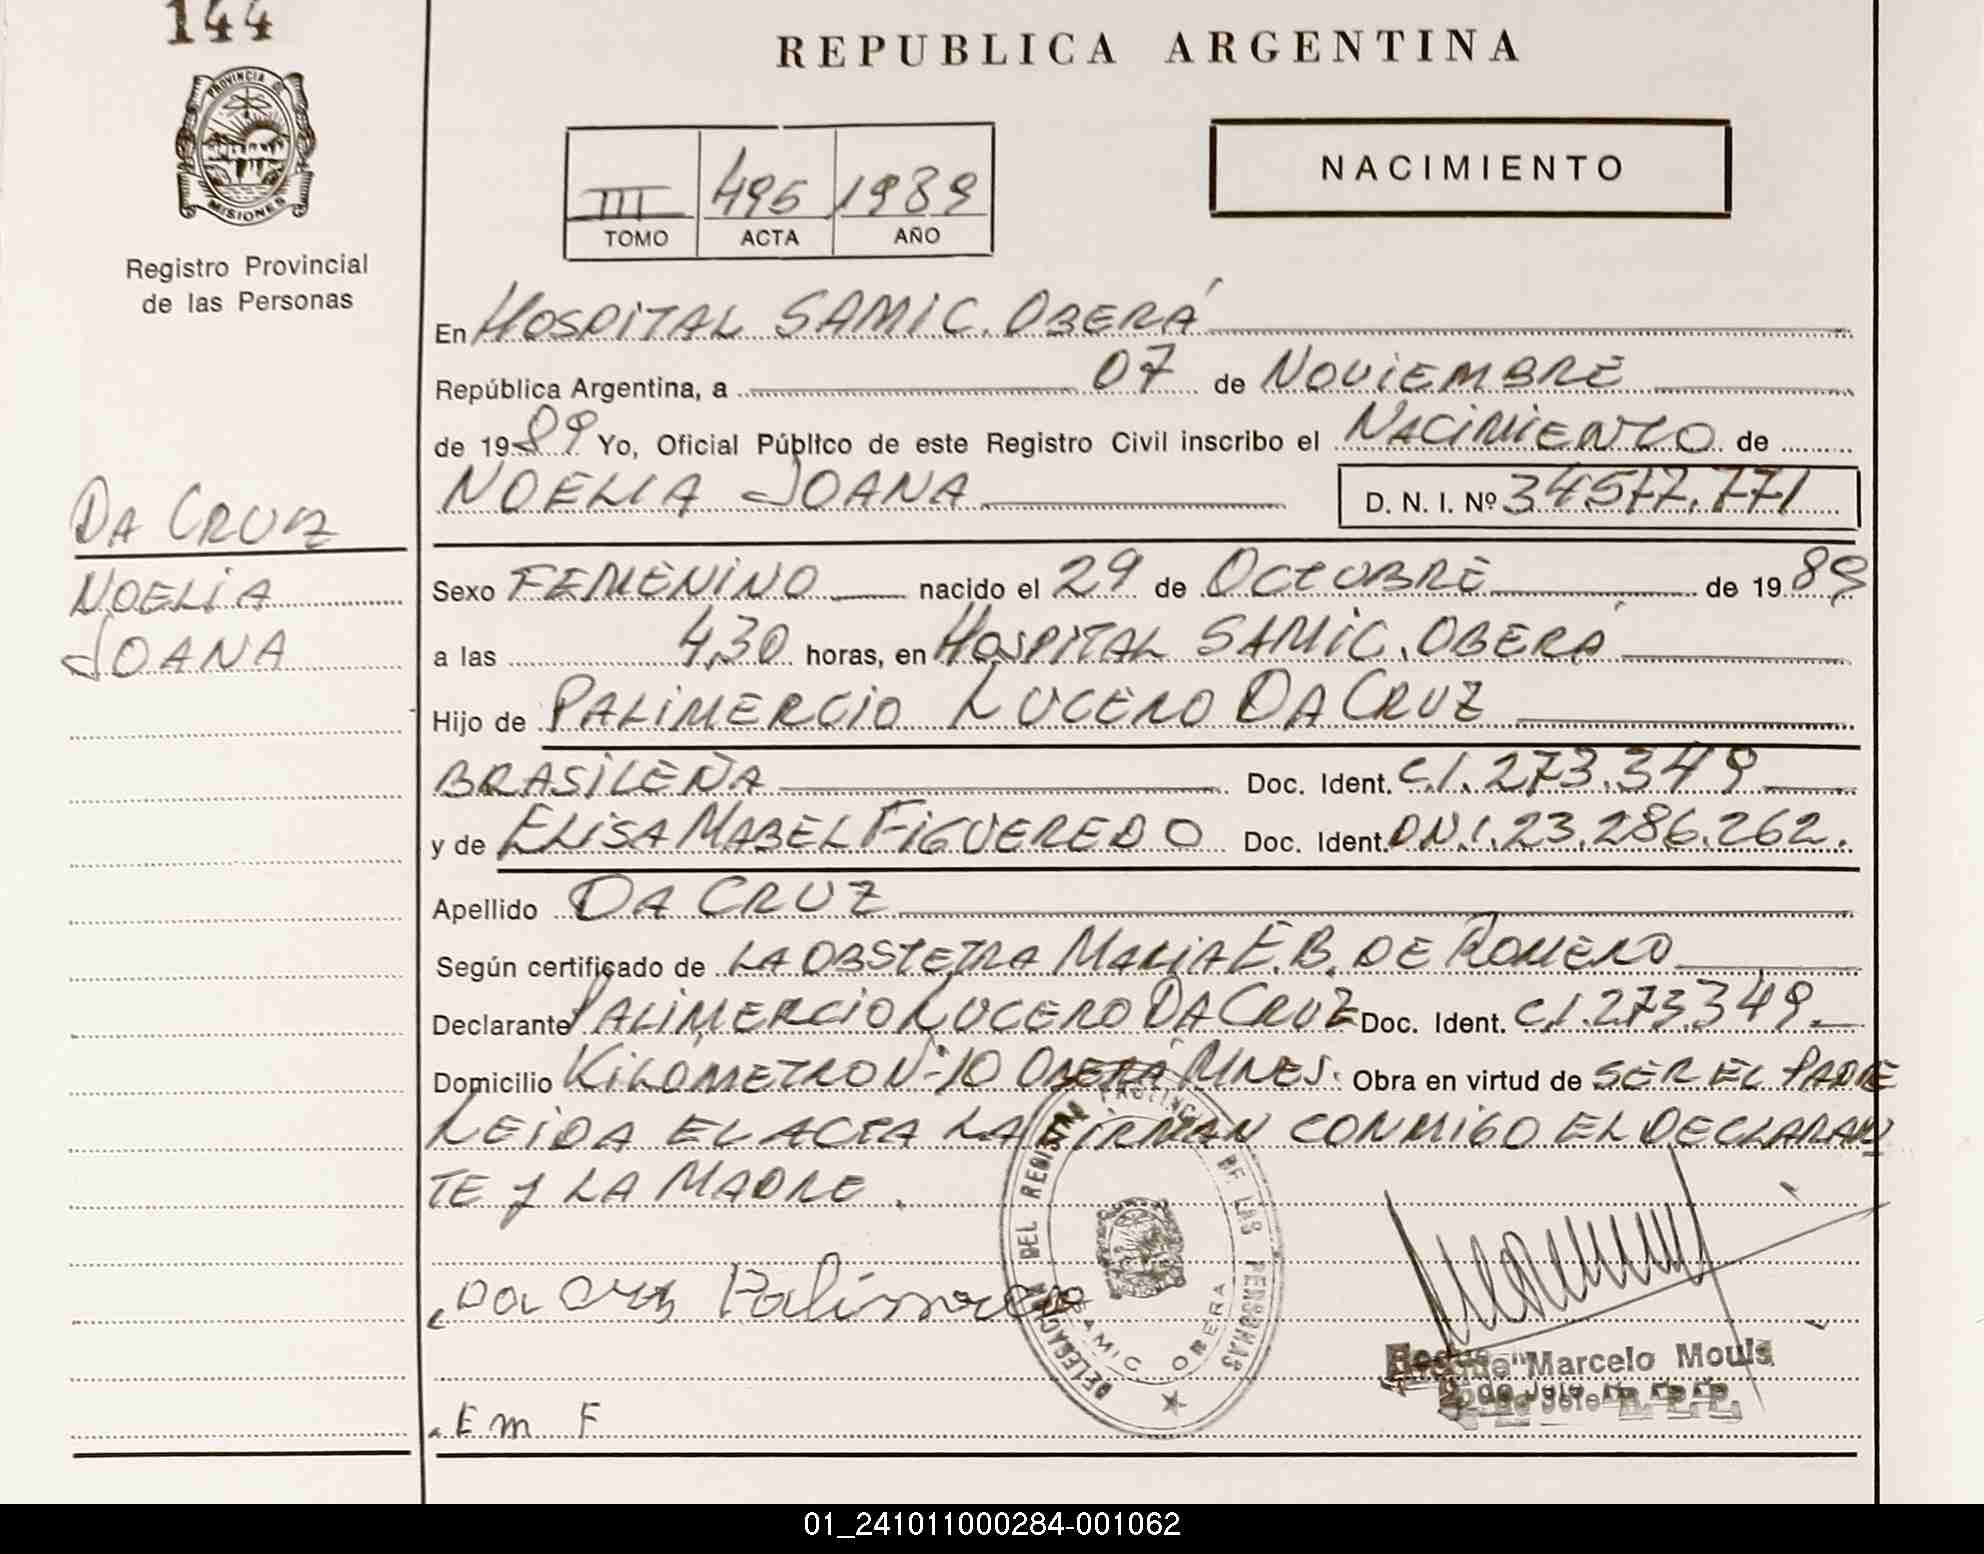 144
REPUBLICA ARGENTINA
PROVINCIA DE
MISIONES
Registro Provincial
de las Personas
III 495 1989
TOMO ACTA AÑO
NACIMIENTO
En HOSPITAL SAMIC. OBERÁ
República Argentina, a 07 de NOVIEMBRE
de 1989 Yo, Oficial Público de este Registro Civil inscribo el NACIMIENTO de
NOELIA JOANA D. N. I. Nº 34577.771
DA CRUZ
NOELIA
JOANA
Sexo FEMENINO nacido el 29 de OCTUBRE de 1989
a las 4,30 horas, en HOSPITAL SAMIC. OBERÁ
Hijo de PALIMERCIO LUCERO DA CRUZ
BRASILEÑA Doc. Ident. C.I. 273.349
y de ELISA MABEL FIGUEREDO Doc. Ident. D.N.I. 23.286.262.
Apellido DA CRUZ
Según certificado de LA OBSTETRA MARIA E. B. DE ROMERO
Declarante PALIMERCIO LUCERO DA CRUZ Doc. Ident. C.I. 273.349.
Domicilio KILÓMETRO Nº 10 OBERÁ MNES. Obra en virtud de SER EL PADRE
LEIDA EL ACTA LA FIRMAN CONMIGO EL DECLARAN
TE Y LA MADRE.
DELEGACION DEL REGISTRO PROVINCIAL DE LAS PERSONAS
SAMIC OBERA
Da Crus
E m F
Roque Marcelo Mouls